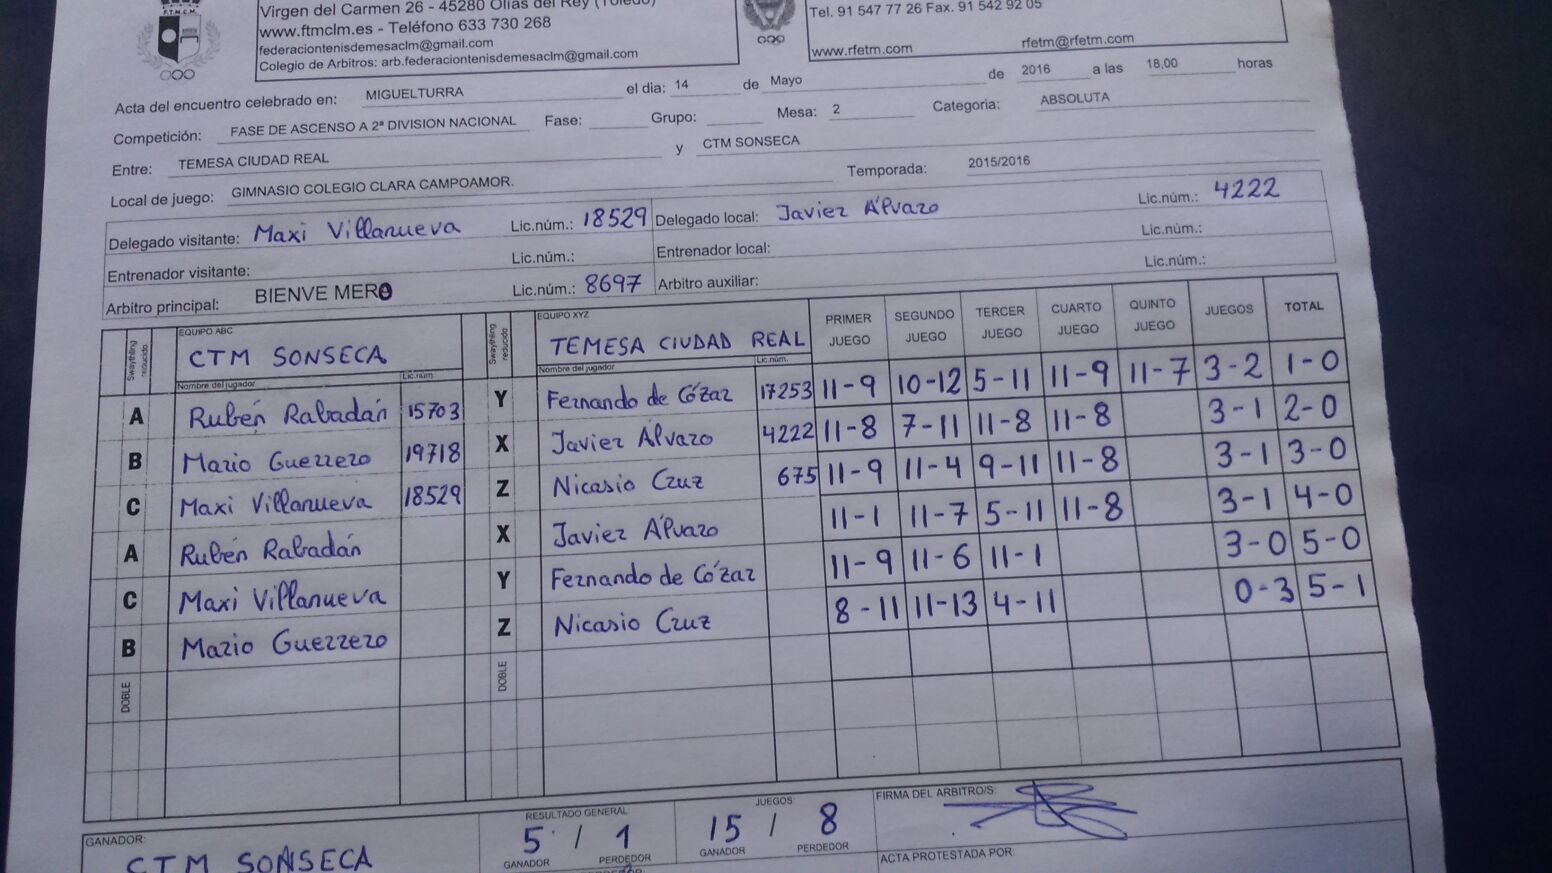 F.T.M.C.M.
Virgen del Carmen 26 - 45280 Olías del Rey (Toledo)
www.ftmclm.es - Teléfono 633 730 268
federaciontenisdemesaclm@gmail.com
Colegio de Arbitros: arb.federaciontenisdemesaclm@gmail.com
Tel. 91 547 77 26 Fax. 91 542 92 05
www.rfetm.com rfetm@rfetm.com
Acta del encuentro celebrado en: MIGUELTURRA el dia: 14 de Mayo de 2016 a las 18,00 horas
Competición: FASE DE ASCENSO A 2ª DIVISION NACIONAL Fase: Grupo: Mesa: 2 Categoria: ABSOLUTA
Entre: TEMESA CIUDAD REAL y CTM SONSECA
Local de juego: GIMNASIO COLEGIO CLARA CAMPOAMOR. Temporada: 2015/2016
Delegado visitante: Maxi Villanueva Lic.núm.: 18529 Delegado local: Javier Álvaro Lic.núm.: 4222
Entrenador visitante: Lic.núm.: Entrenador local: Lic.núm.:
Arbitro principal: BIENVE MERO Lic.núm.: 8697 Arbitro auxiliar: Lic.núm.:
Swaythling reducido EQUIPO ABC CTM SONSECA Swaythling reducido EQUIPO XYZ TEMESA CIUDAD REAL PRIMER JUEGO SEGUNDO JUEGO TERCER JUEGO CUARTO JUEGO QUINTO JUEGO JUEGOS TOTAL
Nombre del jugador Lic.núm. Nombre del jugador Lic.núm.
A Rubén Rabadán 15703 Y Fernando de Cózar 17253 11-9 10-12 5-11 11-9 11-7 3-2 1-0
B Mario Guerrero 19718 X Javier Álvaro 4222 11-8 7-11 11-8 11-8 3-1 2-0
C Maxi Villanueva 18529 Z Nicasio Cruz 675 11-9 11-4 9-11 11-8 3-1 3-0
A Rubén Rabadán X Javier Álvaro 11-1 11-7 5-11 11-8 3-1 4-0
C Maxi Villanueva Y Fernando de Cózar 11-9 11-6 11-1 3-0 5-0
B Mario Guerrero Z Nicasio Cruz 8-11 11-13 4-11 0-3 5-1
DOBLE DOBLE
GANADOR: CTM SONSECA
RESULTADO GENERAL
5 / 1
GANADOR PERDEDOR
JUEGOS:
15 / 8
GANADOR PERDEDOR
FIRMA DEL ARBITRO/S:
ACTA PROTESTADA POR: